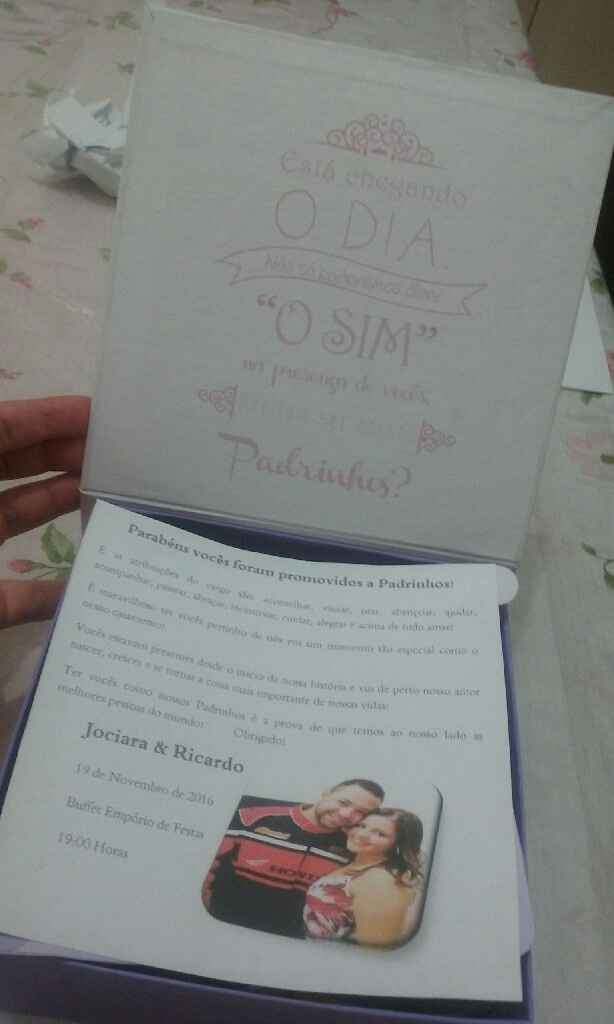 Está chegando
O DIA
Não só poderemos dizer
"O SIM"
na presença de vocês,
Padrinhos?
Parabéns vocês foram promovidos a Padrinhos!
E as atribuições do cargo são: aconselhar, orar, abençoar, ajudar,
acompanhar, passear, abraçar, incentivar, cuidar, alegrar e acima de tudo amar!
É maravilhoso ter vocês pertinho de nós em um momento tão especial como o
nosso casamento.
Vocês estavam presentes desde o início da nossa história e viu de perto nosso amor
nascer, crescer e se tornar a coisa mais importante de nossas vidas!
Ter vocês como nossos Padrinhos é a prova de que temos ao nosso lado as
melhores pessoas do mundo! Obrigado!
Jociara & Ricardo
19 de Novembro de 2016
Buffet Empório de Festa
19:00 Horas
HONDA